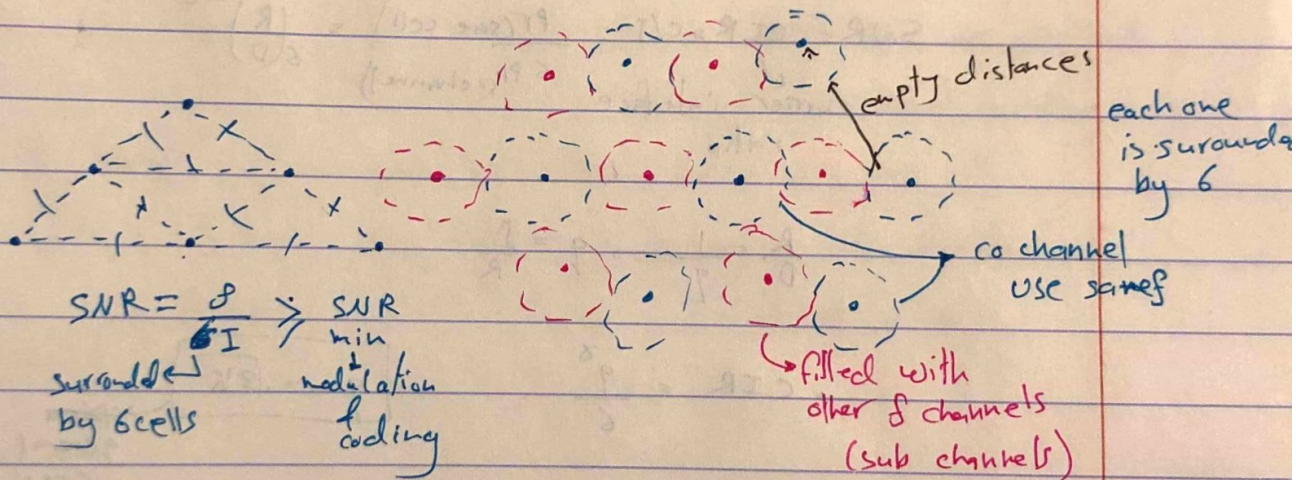 empty distances
each one
is surounde
by 6
co channel
use samef
SNR = S / 6I ≥ SNR min
surrounded
by 6 cells
modulation
&
coding
filled with
other f channels
(sub channels)